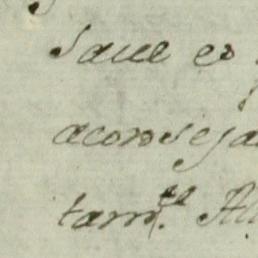 Saue es
aconseja
tam.te Au